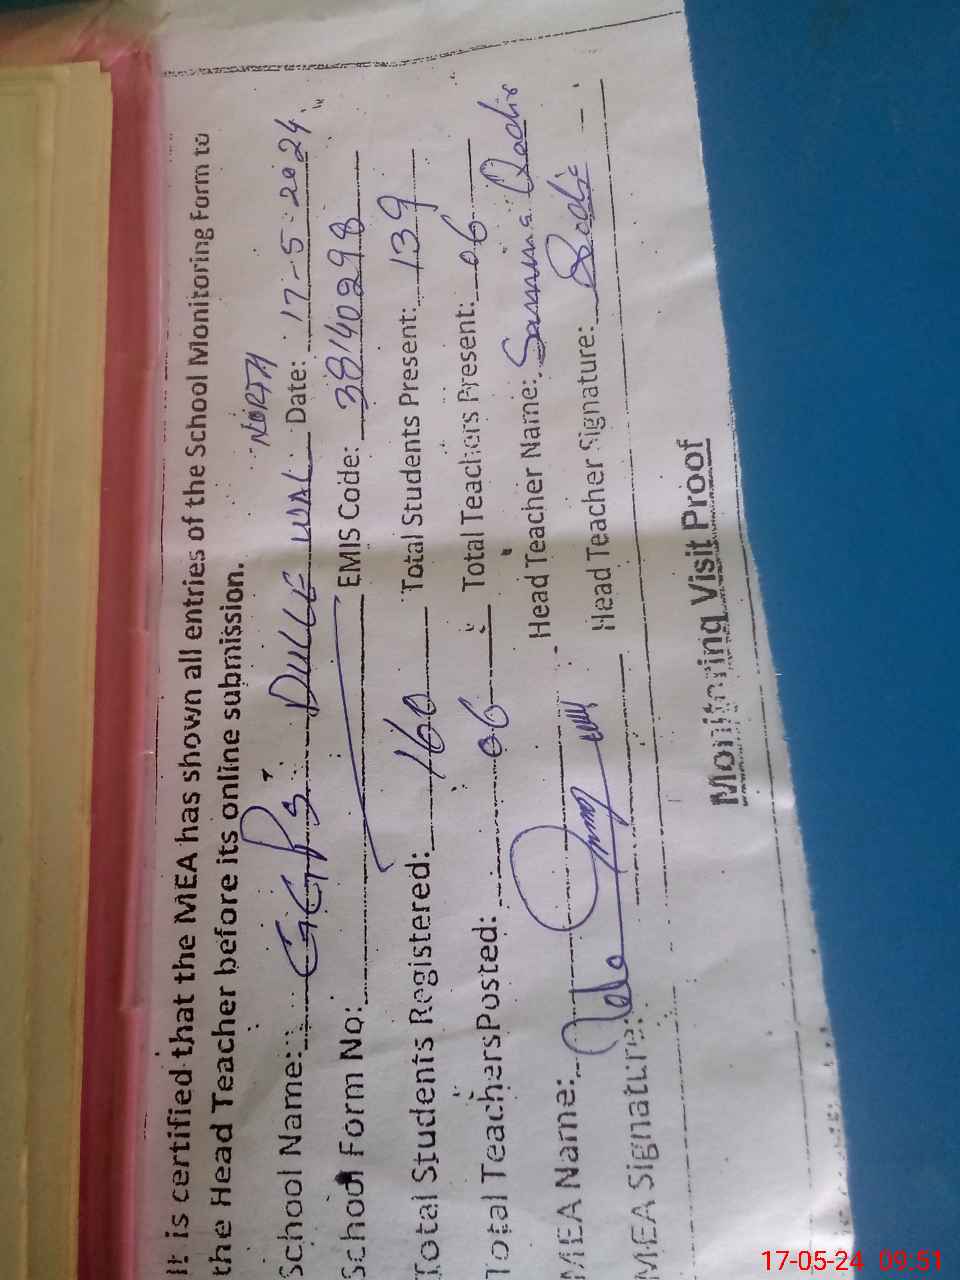 It is certified that the MEA has shown all entries of the School Monitoring Form to
the Head Teacher before its online submission.
NORTH
School Name: GGPS DULLE WAL Date: 17-5-2024
School Form No: EMIS Code: 38140298
Total Students Registered: 160 Total Students Present: 139
Total Teachers Posted: 06 Total Teachers Present: 06
MEA Name: Head Teacher Name: Samina Qadir
MEA Signature: Head Teacher Signature:
Monitoring Visit Proof
17-05-24 09:51